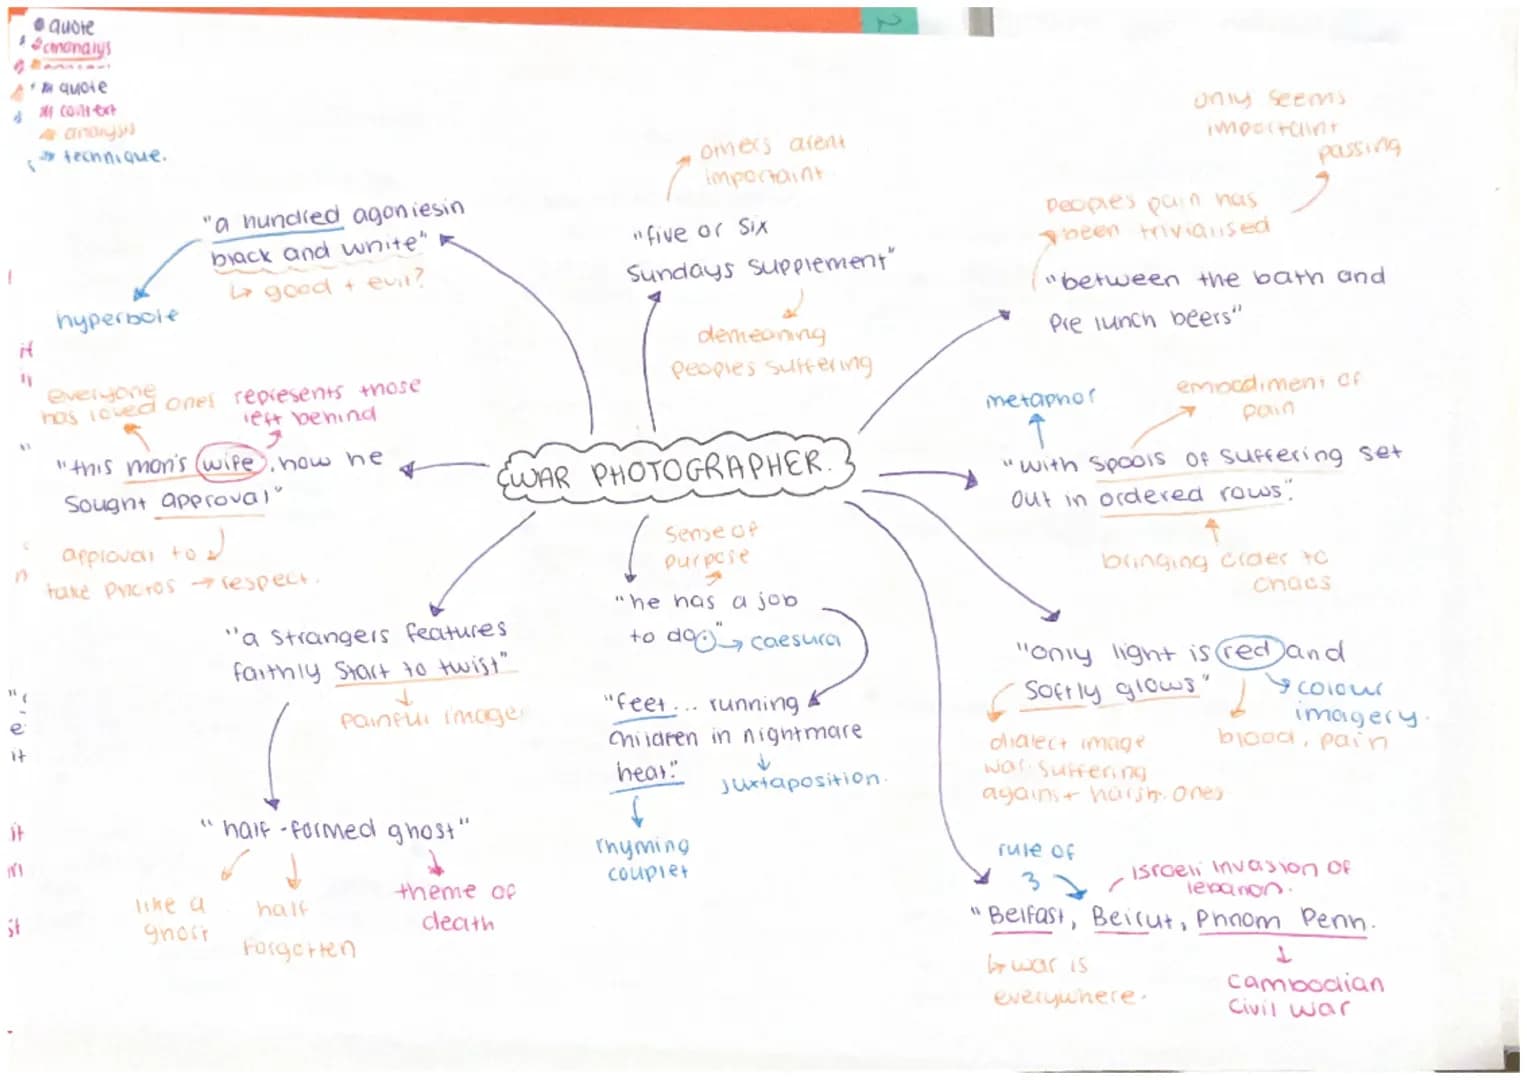 quote
ananalys
quote
context
analysis
technique.
"a hundred agoniesin
black and white"
↳ good + evil?
hyperbole
others arent
importaint
"five or six
Sundays supplement"
demeaning
peoples suffering
only seems
importaint
passing
peoples pain has
been trivialised
"between the bath and
pre lunch beers"
everyone
has loved ones
represents those
left behind
"this man's wife, how he
Sought approval"
approval to
take → respect.
WAR PHOTOGRAPHER.
metaphor
embodiment of
pain
"with spools of suffering set
out in ordered rows".
bringing order to
chaos
sense of
purpose
"he has a job
to do." → caesura
"a strangers features
faithly Start to twist"
painful image
"feet... running
children in nightmare
heat."
juxtaposition.
rhyming
couplet
"only light is red and
Softly glows"
colour
imagery.
blood, pain
dialect image
war suffering
against harsh ones
"half-formed ghost"
like a
ghost
half
forgotten
theme of
death
rule of
3
israeli invasion of
lebanon.
"Belfast, Beirut, Phnom Penn.
↳ war is
everywhere.
Cambodian
Civil war
it
it
it
st